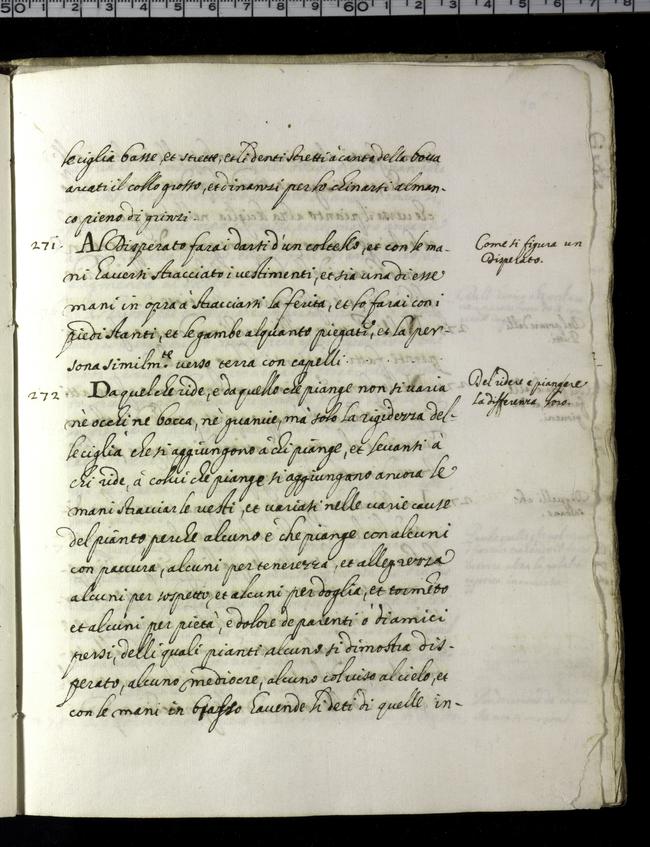 le ciglia basse, et strette, et li denti stretti à canto della bocca
arcati il collo grosso, et dinanzi per lo chinarsi al man-
co pieno di grinzi.
271. Al Disperato farai darsi d'un coltello, et con le ma- Come si figura un
ni haversi stracciato i vestimenti, et sia una di esse Disperato.
mani in opra à stracciarsi la ferita, et lo farai con i
piedi stanti, et le gambe alquanto piegati, et la per
sona similmte verso terra con capelli . . .
272 Da quel che ride, e da quello che piange non si varia Del ridere e piangere
nè occhi nè bocca, nè guancie, mà solo la rigidezza del- la differenza loro.
le ciglia che si aggiungono à chi piange, et levansi à
chi ride, à colui che piange si aggiungano ancora le
mani stracciar le vesti, et variati nelle varie cause
del pianto perche alcuno è che piange con alcuni
con paccura, alcuni per tenerezza, et allegrezza
alcuni per sospetto, et alcuni per doglia, et torméto
et alcuni per pietà, e dolore de parenti ò d'iamici
persi, delli quali pianti alcuno si dimostra dis-
perato, alcuno mediocre, alcuno col viso al cielo, et
con le mani in basso havende li deti di quelle in-